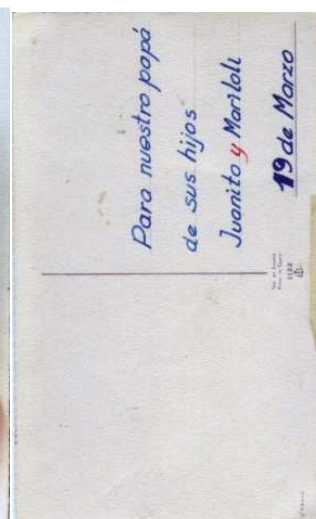 Para nuestro papá
de sus hijos
Juanito y Mariloli
19 de Marzo